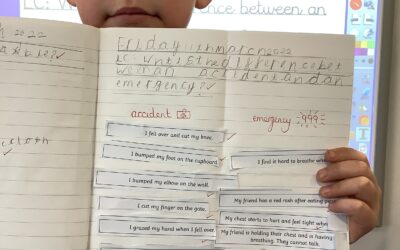 LC: W
ence between an
2022
Friday 11th March 2022
LC: what is the difference bet
ween an accident and an
emergency?
cloth
accident
emergency 999
I fell over and cut my knee.
I bumped my foot on the cupboard.
I find it hard to breathe
I bumped my elbow on the wall.
I cut my finger on the gate.
My friend has a red rash after eating
I grazed my hand when I fell over.
My chest starts to hurt and feel tight
My friend is holding their chest and is having
breathing. They cannot talk.